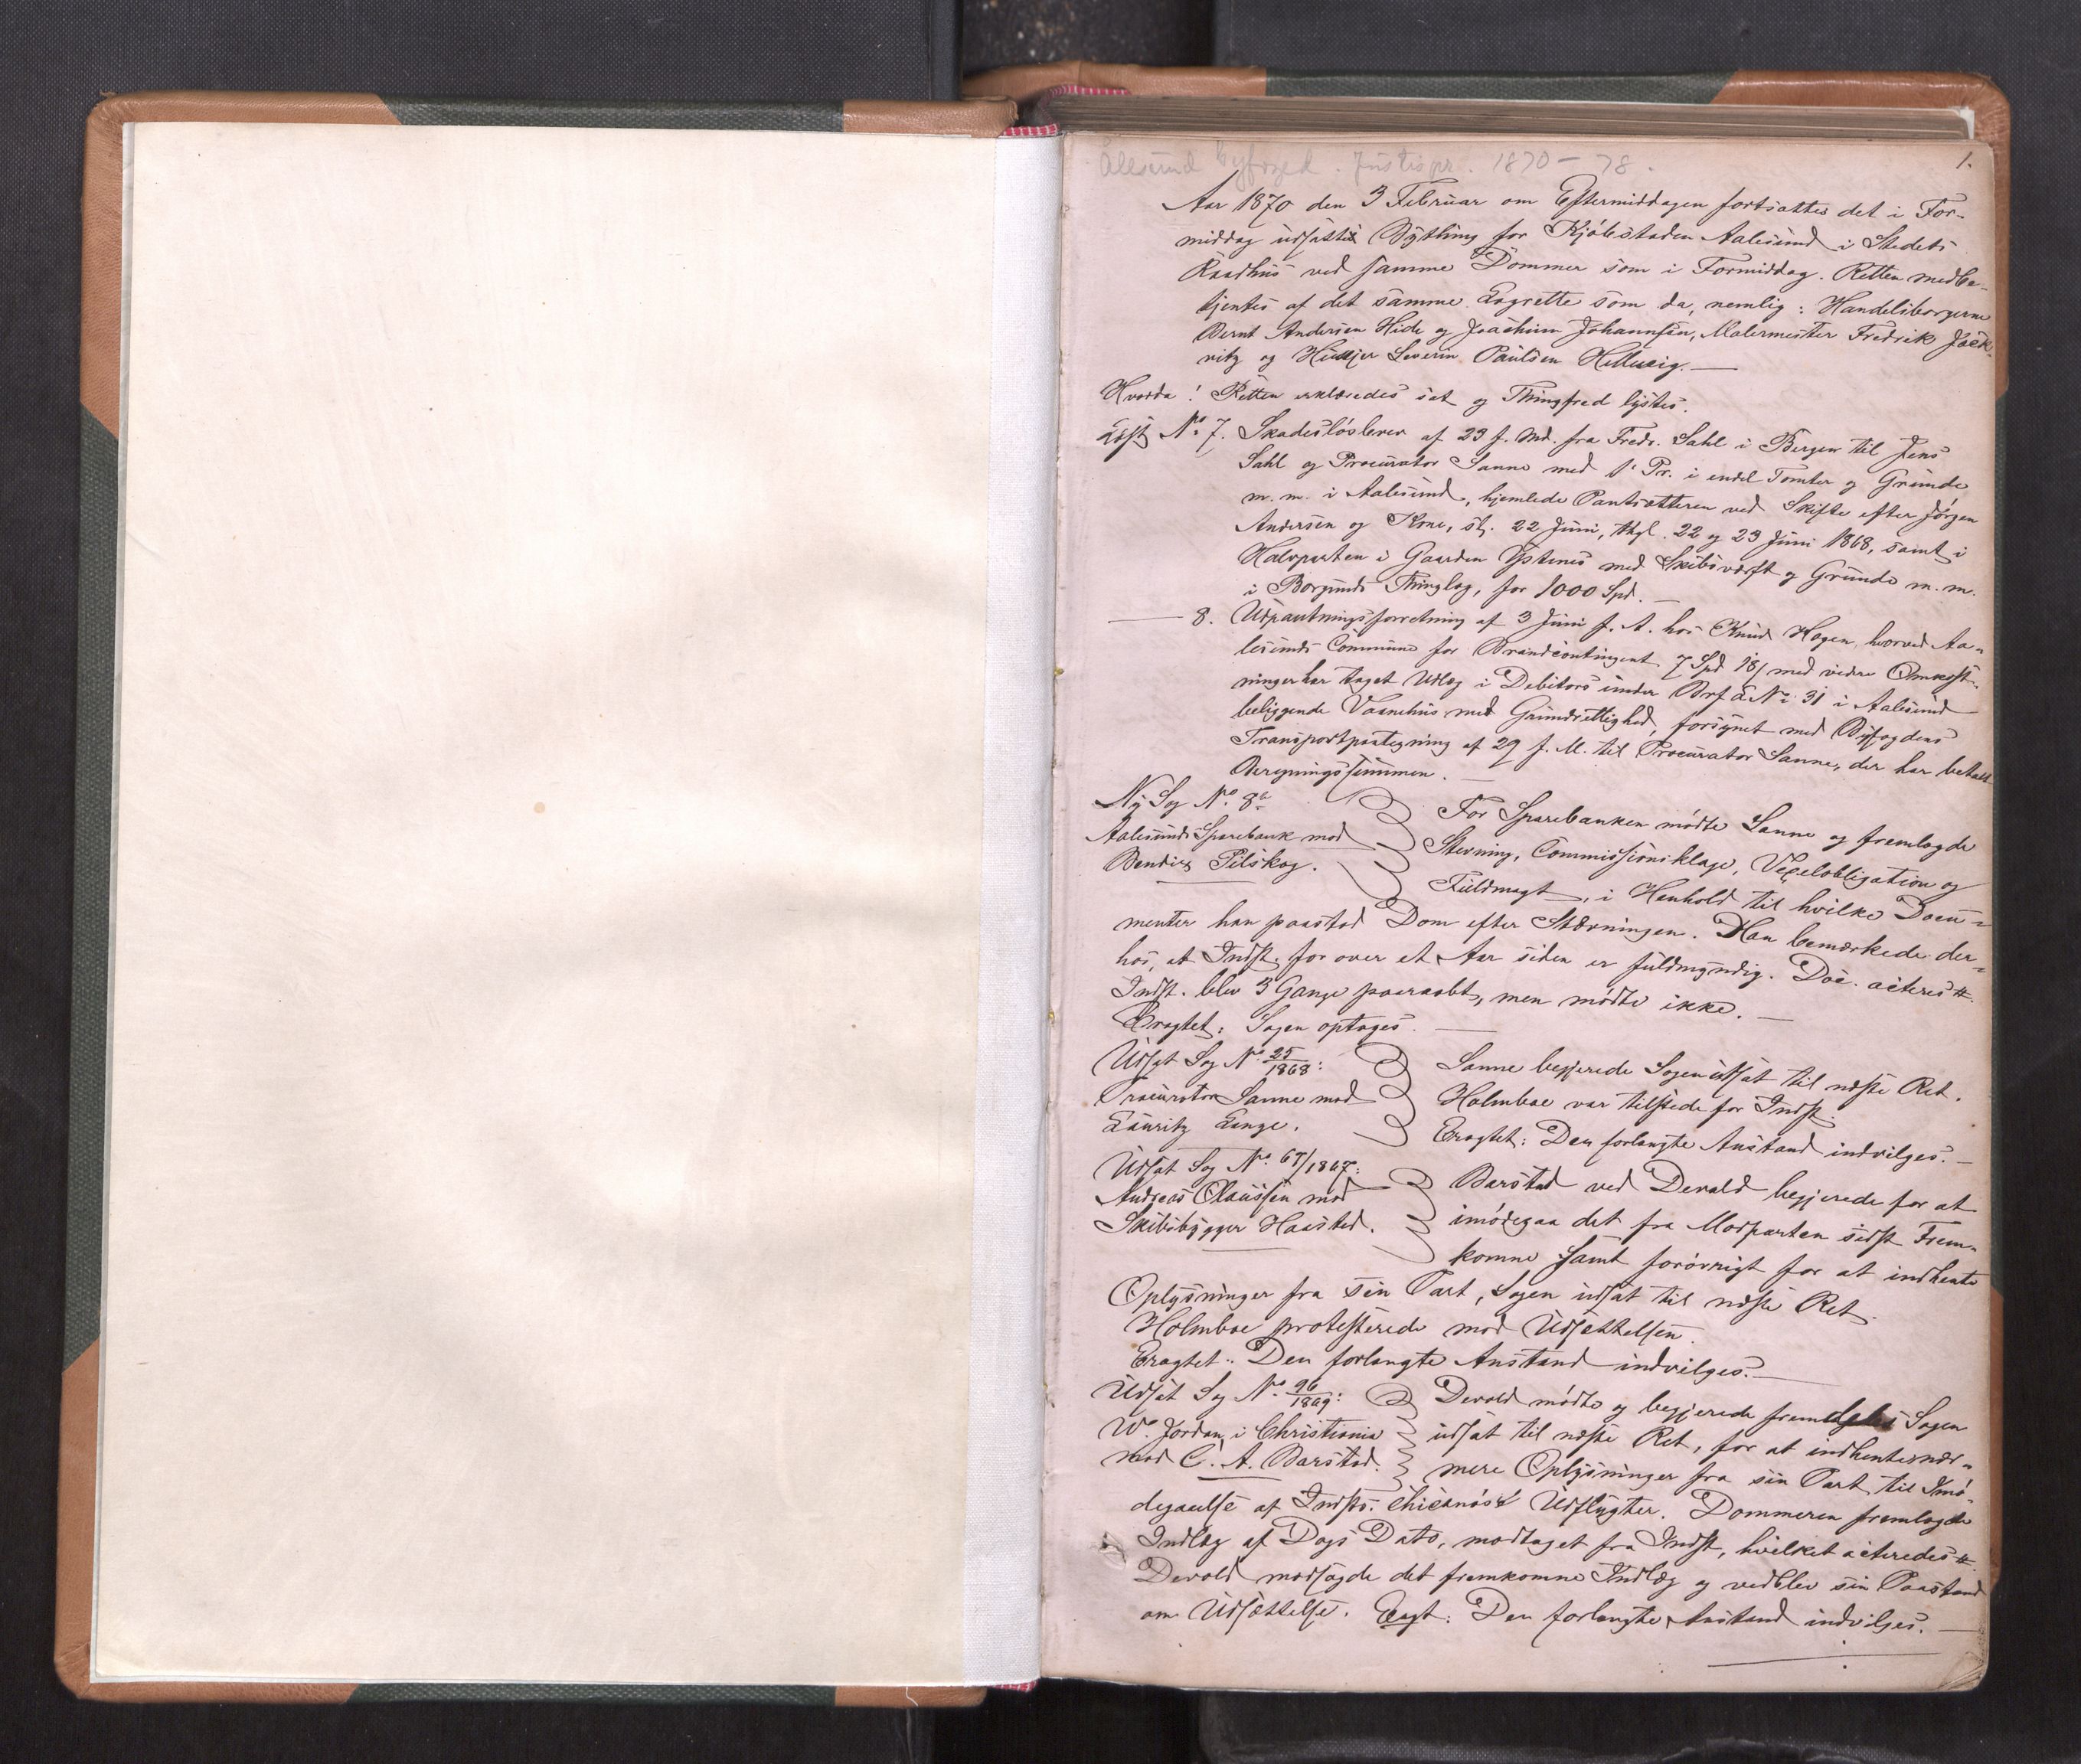 Ålesund byfoged. Justispr. 1870 – 78.
1.
Aar 1870 den 3 Februar om Eftermiddagen fortsattes det i For-
middag udsatte Bything for Kjøbstaden Aalesund i Stedets
Raadhus ved samme Dommer som i Formiddag. Retten medbe-
tjentes af det samme Lagrette som da, nemlig: Handelsborgerne
Bernt Andersen Hide og Joachim Johannsen, Malermester Fredrik Jack-
witz og Huusejer Severin Paulsen Hellevig. —
Hvorda: Retten erklæredes sat og Thingfred lystes.
Læst No 7. Skadesløsbrev af 23 f. Md. fra Fredr. Dahl i Bergen til Jens
Dahl og Procurator Sanne med 1' Pr. i endel Tomter og Grunde
m. m. i Aalesund, hjemlede Pantsætteren ved Skifte efter Jørgen
Andersen og Kone, sl. 22 Juni, thgl. 22 og 23 Juni 1868, samt i
Halvparten i Gaarden Ystenes med Skibsværft og Grunde m. m.
i Borgunds Thinglag, for 1000 Spd. —
— 8. Udpantningsforretning af 3 Juni f. A. hos Knud Hagen, hvorved Aa-
lesunds Commune for Brandcontingent 7 Spd 18/ med videre Omkost-
ninger har taget Udlæg i Debitors under Brf a No 31 i Aalesund
beliggende Vaanehus med Grundrettighed, forsynet med Byfogdens
Transportpaategning af 29 f. M. til Procurator Sanne, der har betalt
Beregningssummen. —
Ny Sag No 8b
Aalesunds Sparebank mod
Bendix Pilskog.
For Sparebanken mødte Sanne og fremlagde
Stevning, Commissionsklage, Vexelobligation og
Fuldmagt, i Henhold til hvilke Docu-
menter han paastod Dom efter Stævningen. Han bemærkede der-
hos, at Indst. for over et Aar siden er fuldmyndig. Doc. acteres #.
Indst. blev 3 Gange paaraabt, men mødte ikke. —
Eragtet: Sagen optages. —
Udsat Sag No 25/1868:
Procurator Sanne mod
Lauritz Lange.
Sanne begjerede Sagen udsat til næste Ret.
Holmboe var tilstede for Indst.
Eragtet: Den forlangte Anstand indvilges. —
Udsat Sag No 67/1867:
Andreas Olaussen mod
Skibsbygger Haasted.
Barstad ved Devold begjerede for at
imødegaa det fra Modparten sidst Frem-
komne samt forøvrigt for at indhente
Oplysninger fra sin Part, Sagen udsat til næste Ret.
Holmboe protesterede mod Udsættelsen.
Eragtet: Den forlangte Anstand indvilges. —
Udsat Sag No 96/1869:
Wm Jordan i Christiania
mod C. A. Barstad.
Devold mødte og begjerede Sagen
udsat til næste Ret, for at indhente nær-
mere Oplysninger fra sin Part til Imø-
degaaelse af Indsts. chicanøse Udflugter. Dommeren fremlagde
Indlæg af Dags Dato, modtaget fra Indst, hvilket acteredes #.
Devold modsagde det fremkomne Indlæg og vedblev sin Paastand
om Udsættelse. Eragt: Den forlangte Anstand indvilges. —